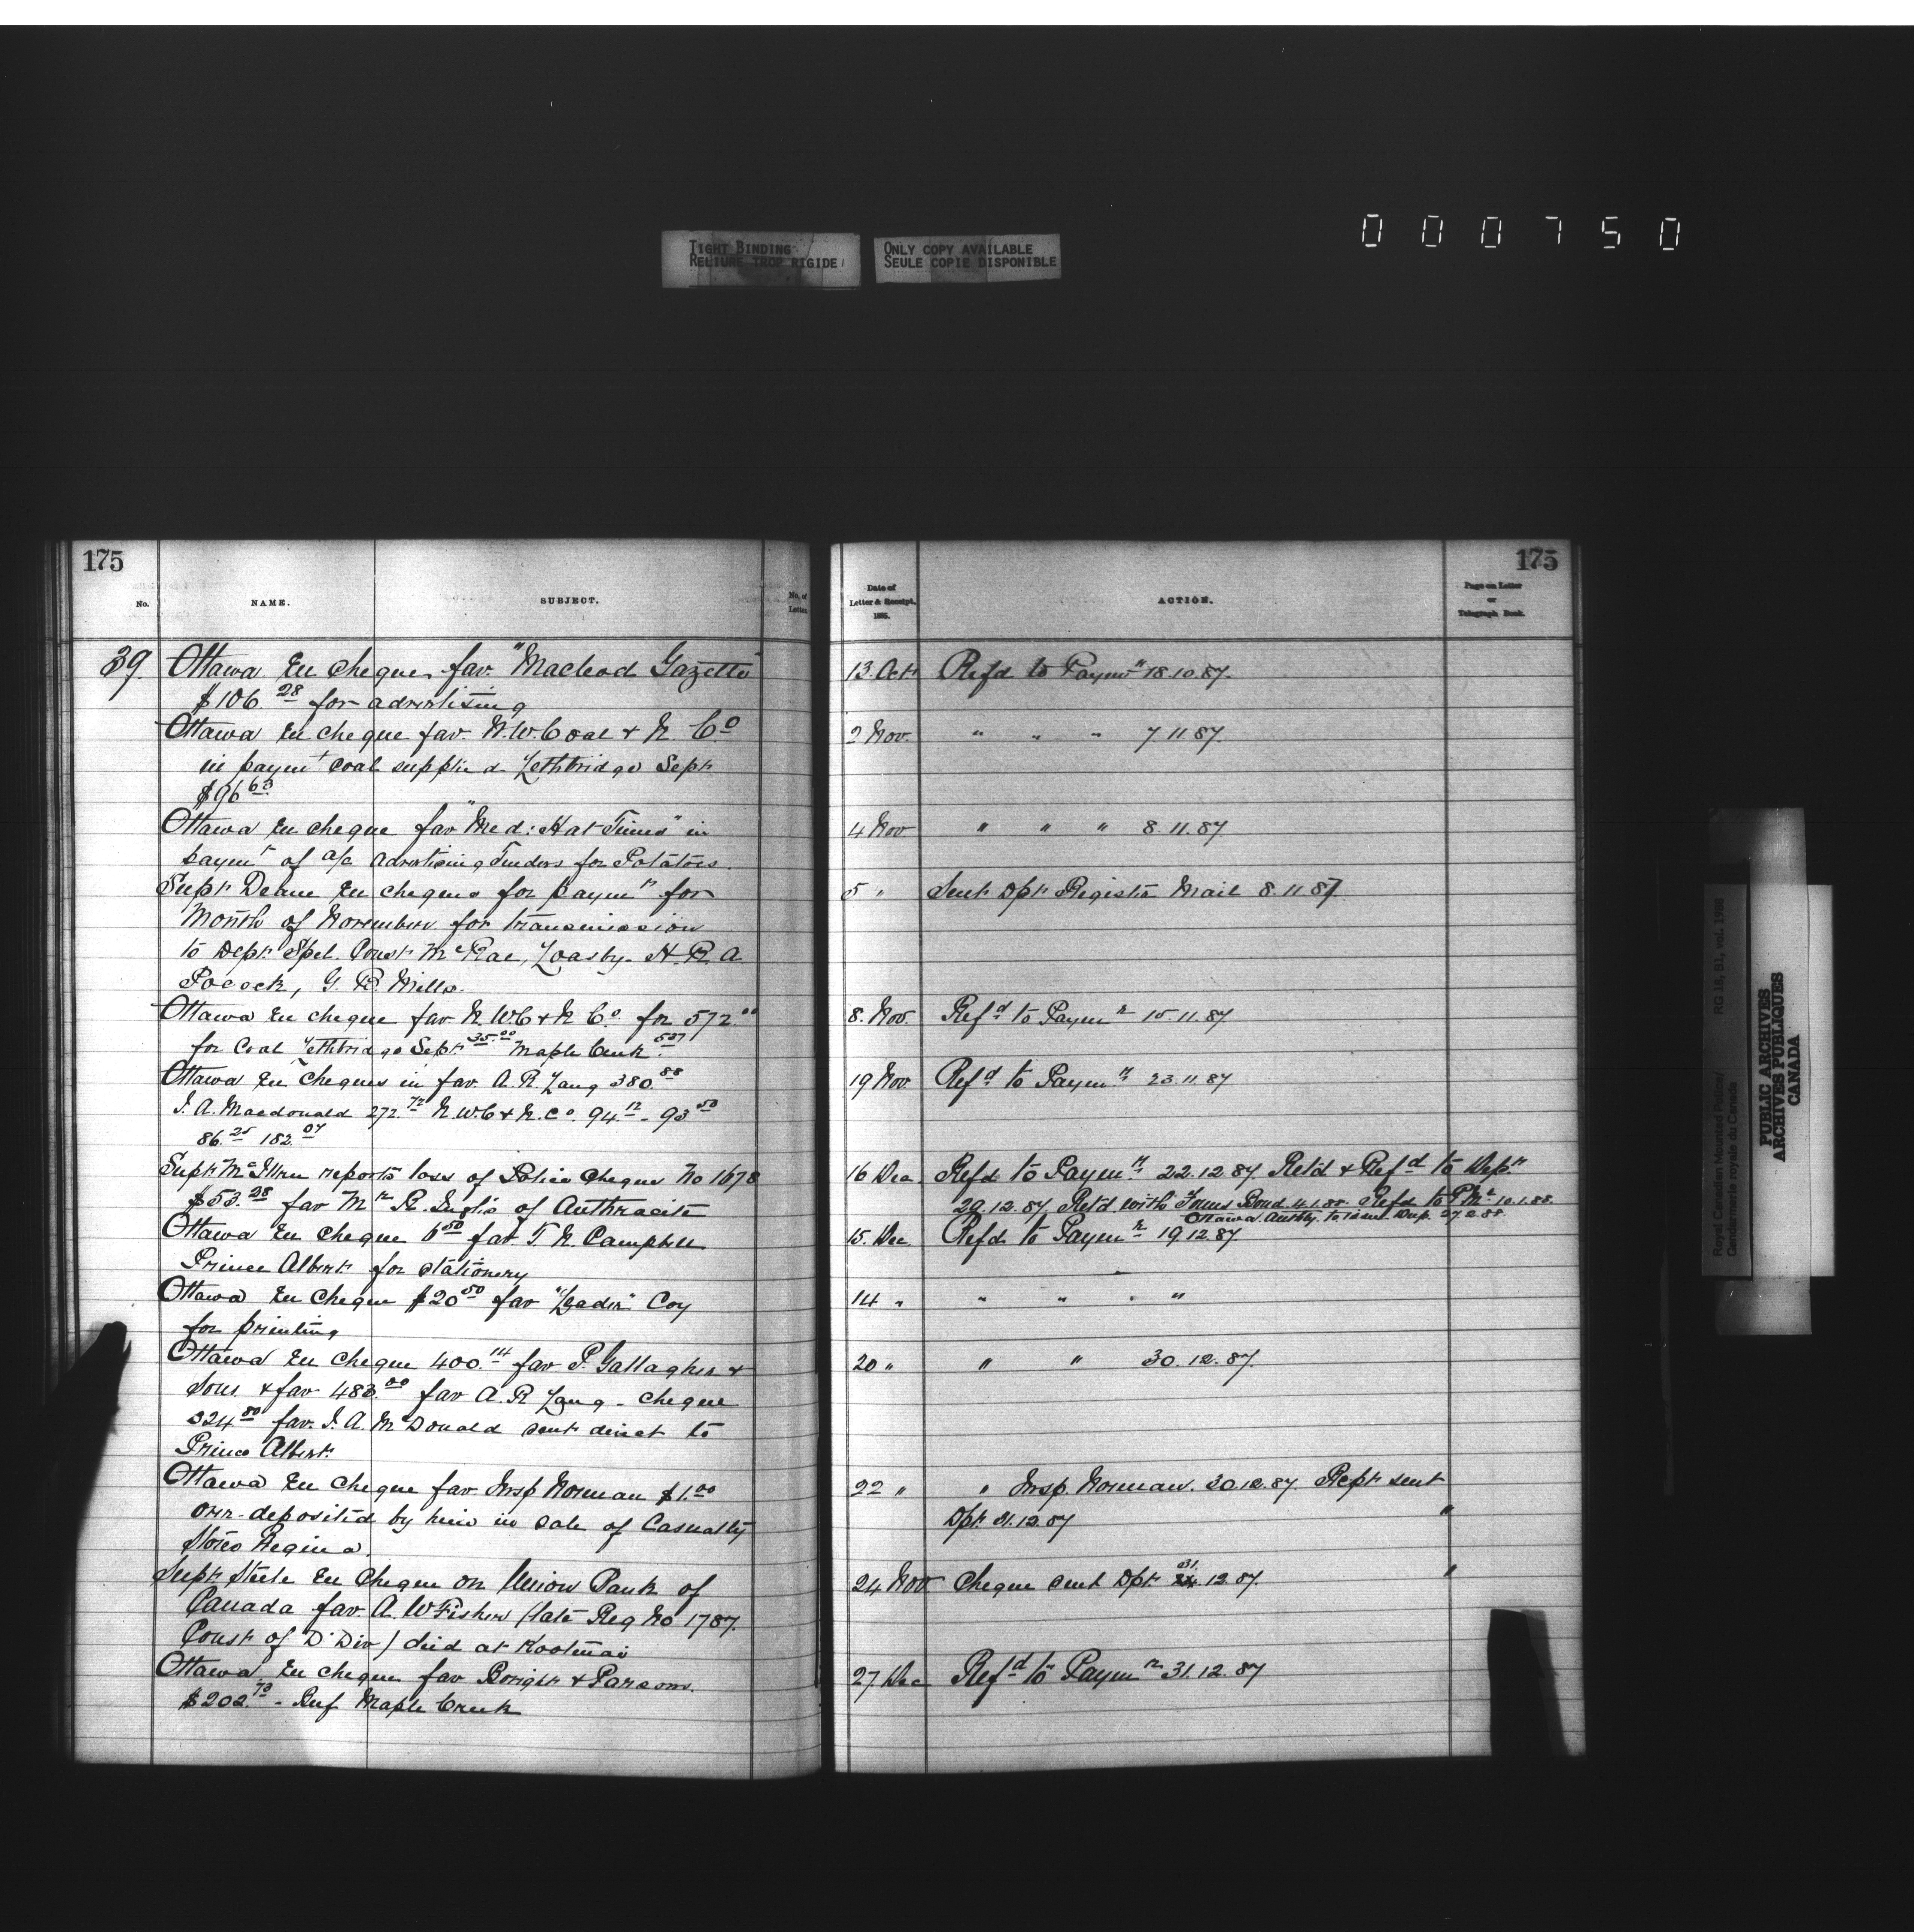 TIGHT BINDING
RELIURE TROP RIGIDE
ONLY COPY AVAILABLE
SEULE COPIE DISPONIBLE
000750
175
No.
NAME.
SUBJECT.
No. of
Letter.
39. Ottawa En cheque fav. "Macleod Gazette"
$106.28 for advertising
Ottawa En cheque fav. N.W. Coal & N. Co
in paymt coal supplied Lethbridge Sept
$96.63
Ottawa En cheque fav "Med: Hat Times" in
paymt of a/c advertising Tenders for Potatoes
Supt Deane En cheques for paymt for
Month of November for transmission
to Dept Spcl. Const McRae, Loasby. H.R.A
Pocock, G. B. Mills.
Ottawa En cheque fav N.W.C & N Co. for 572.00
for Coal Lethbridge Sept 35.00 Maple Creek 537
Ottawa En cheques in fav. A. R. Lang 380.88
J. A. Macdonald 272.72 N.W.C & N. Co. 94.12 - 93.50
86.25 182.07
Supt McIllree reports loss of Police Cheque No 1678
$53.28 fav Mr R. Inglis of Anthracite
Ottawa En cheque 6.50 fav. T. N. Campbell
Prince Albert for stationery
Ottawa En Cheque $20.50 fav "Leader" Coy
for printing
Ottawa En Cheque 400.14 fav P. Gallagher &
Sons & fav 483.00 fav A. R Lang - cheque
324.80 fav. J. A. McDonald sent direct to
Prince Albert.
Ottawa En cheque fav Insp Norman $1.00
over-deposited by him in sale of Casualty
Stores Regina.
Supt Steele En Cheque on Union Bank of
Canada fav. A. W Fisher (late Reg No 1787.
Const of D. Div) died at Kootenai
Ottawa En cheque fav Boright & Parsons.
$202.73 - Beef Maple Creek
175
Date of
Letter & Receipt.
1885.
ACTION.
Page on Letter
or
Telegraph Book.
13. Oct Refd to Paymr 18.10.87.
2 Nov. " " " 7 11 87.
4 Nov " " " 8. 11. 87
5 " Sent Dpt Registd Mail 8. 11 87
8. Nov. Refd to Paymr 15.11.87
19 Nov Refd to Paymr 23.11.87
16 Dec Refd to Paymr 22.12.87 Retd & Refd to Dept
29.12.87 Retd with Bond 4.1.88. Refd to P Mr 10.1.88.
Ottawa Authty. to issue Dup. 27 2 88.
15. Dec Refd to Paymr 19.12.87.
14 " " " " "
20 " " " 30.12.87.
22 " " Insp. Norman. 30.12.87. Rcpt sent
Dpt 31.12.87 "
24 Nov Cheque sent Dpt 31. 12.87. "
27 Dec Refd to Paymr 31.12.87
Royal Canadian Mounted Police/ RG 18, B1, vol. 1988
Gendarmerie royale du Canada
PUBLIC ARCHIVES
ARCHIVES PUBLIQUES
CANADA